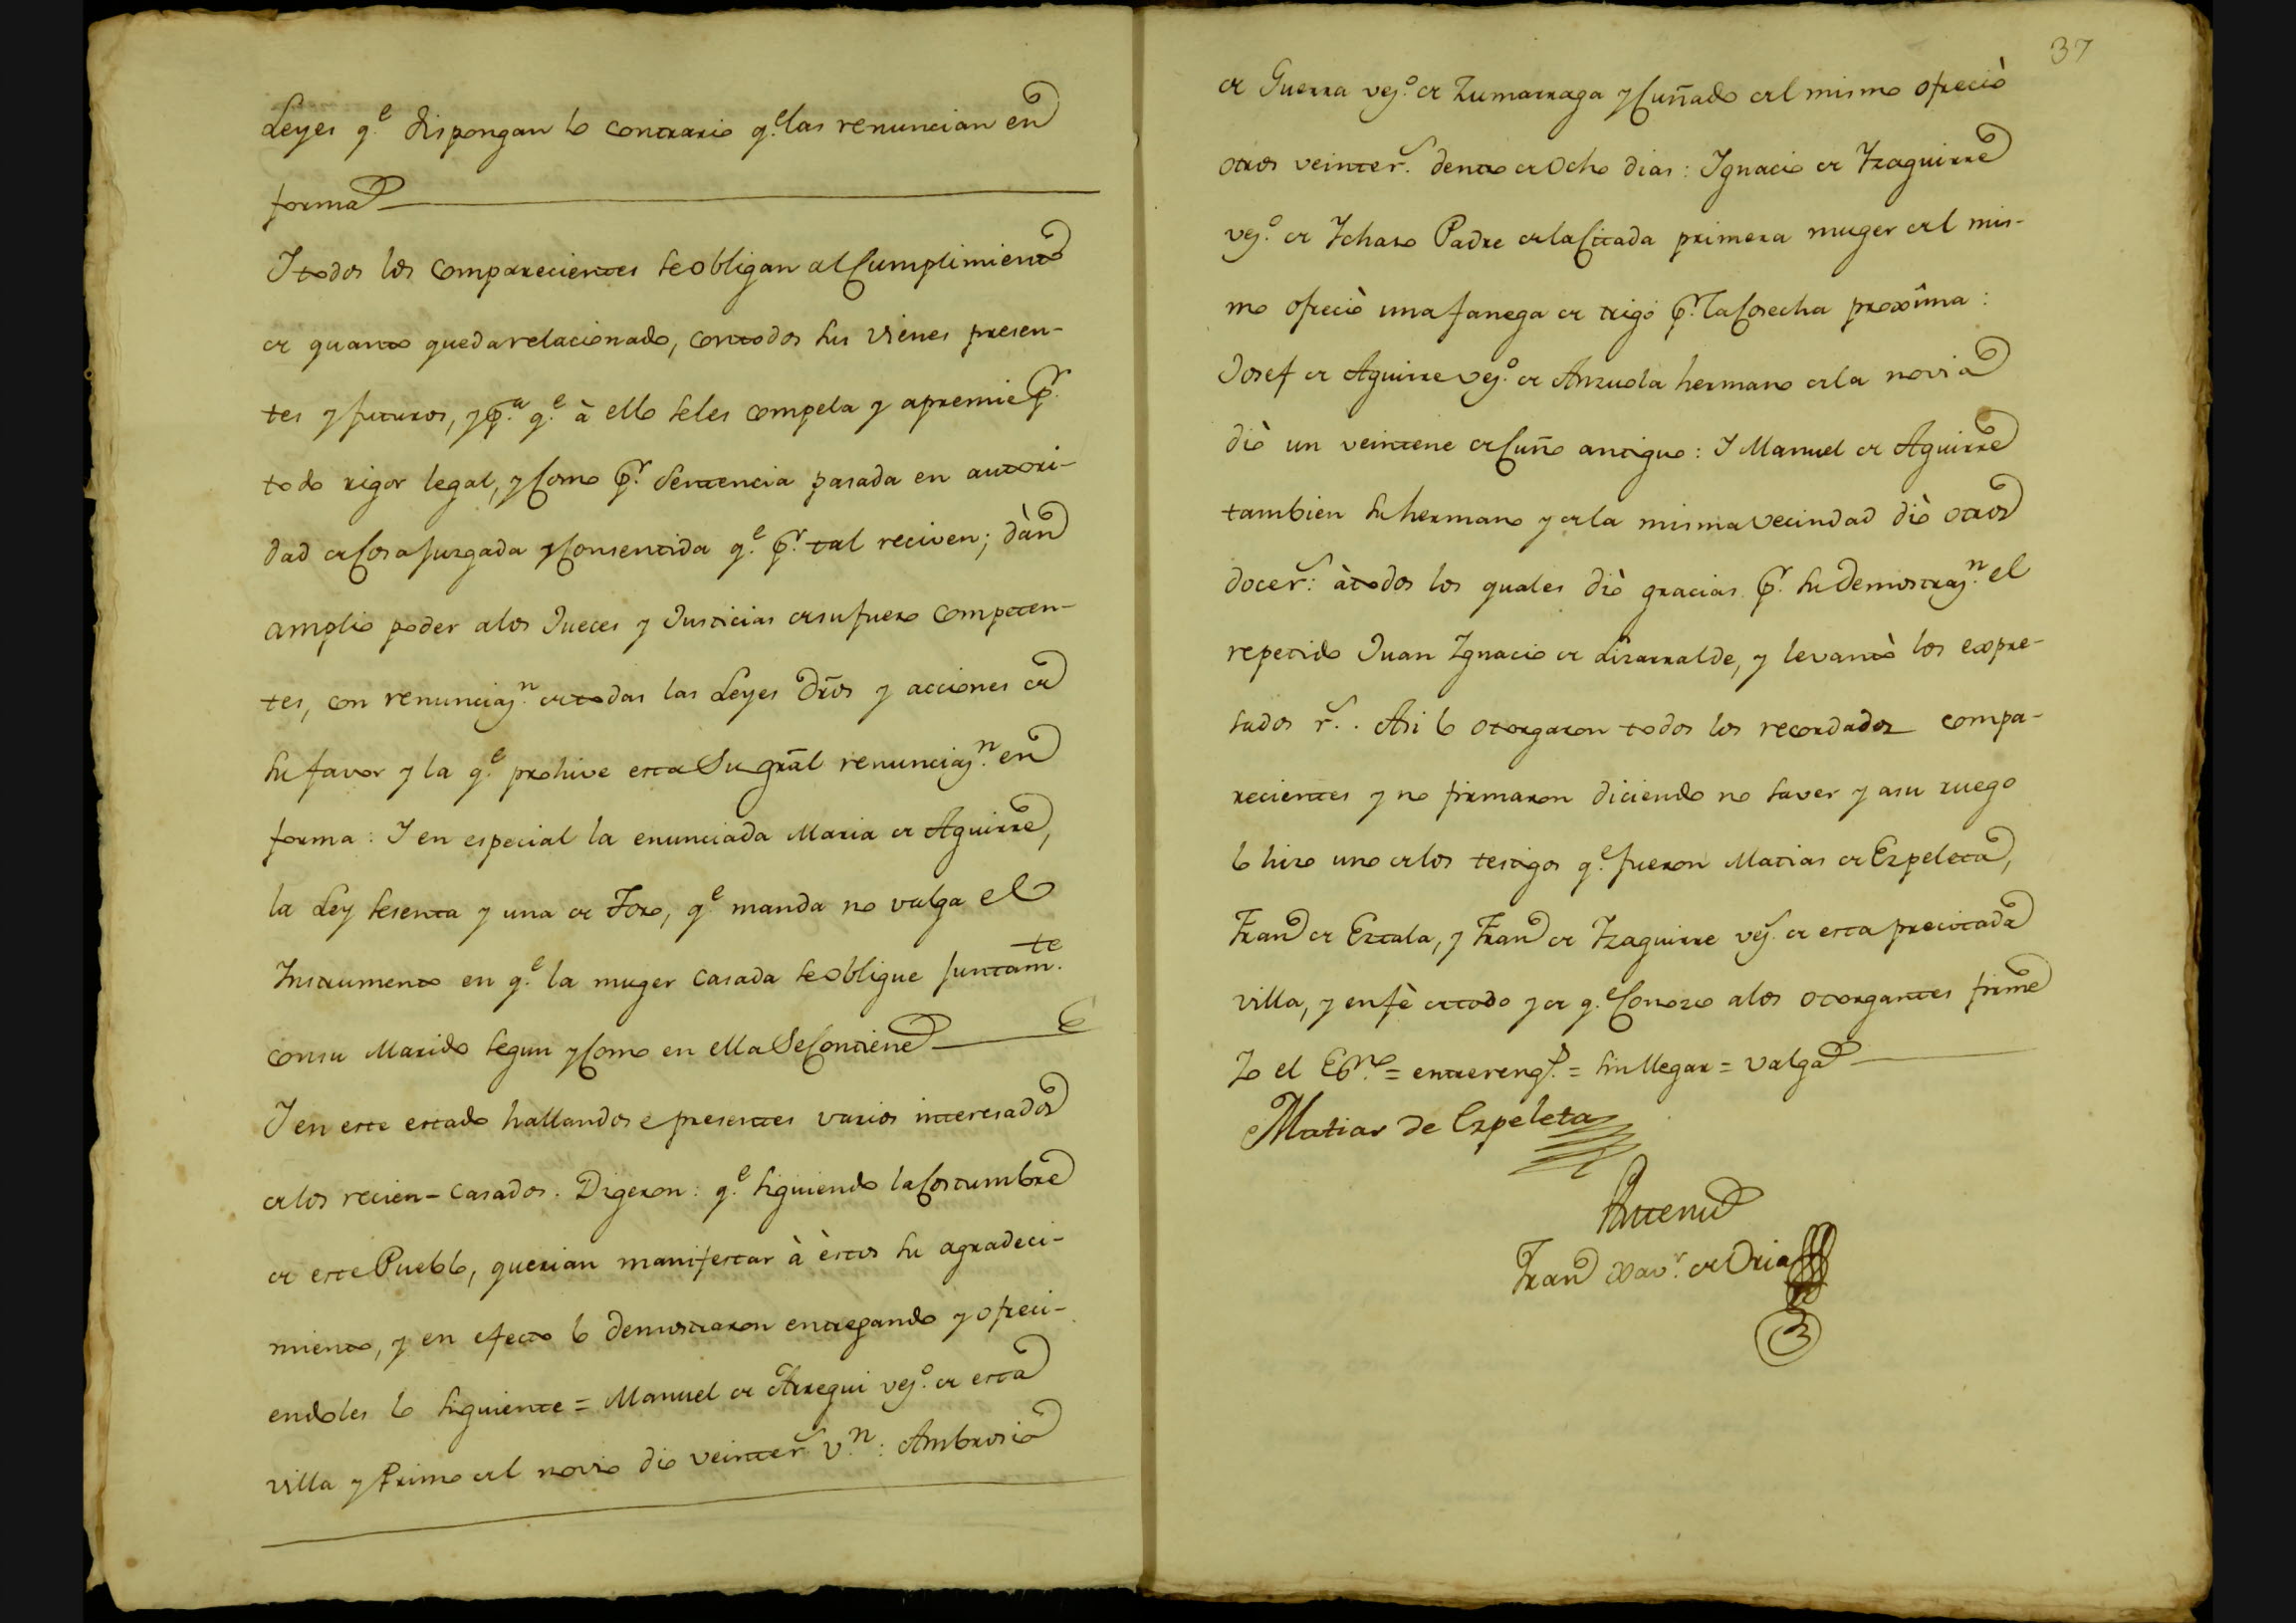 Leyes q.e dispongan lo contrario q.e las renuncian en
forma
Y todos los comparecientes se obligan al Cumplimiento
de quanto queda relacionado, con todos sus vienes presen-
tes y futuros, y p.a q.e à ello se les compela y apremie p.r
todo rigor legal, y Como p.r Sentencia pasada en autori-
dad de Cosa Juzgada y Consentida q.e p.r tal reciven; dàn
amplio poder a los Jueces y Justicias de su fuero competen-
tes, con renunciaz.n de todas las Leyes Drõs y acciones de
su favor y la q.e prohive esta Su grãl renunciaz.n en
forma: Y en especial la enunciada Maria de Aguirre,
la Ley sesenta y una de Toro, q.e manda no valga el
Instrumento en q.e la muger casada se obligue Juntam.te
con su Marido segun y Como en ella Se Contiene
Y en este estado hallandose presentes varios interesados
de los recien-casados. Digeron: q.e siguiendo la Costumbre
de este Pueblo, querian manifestar à èstos su agradeci-
miento, y en efecto lo demostraron entregando y ofreci-
endoles lo siguiente = Manuel de Arregui vez.o de esta
villa y Primo del novio dio veinte r.s v.n: Ambrosio
37
de Guerra vez.o de Zumarraga y Cuñado del mismo ofreciò
otros veinte r.s dentro de Ocho dias: Ygnacio de Yzaguirre
vez.o de Ychaso Padre de la Citada primera muger del mis-
mo ofreciò una fanega de trigo p.r la Cosecha proxîma:
Josef de Aguirre vez.o de Anzuola hermano de la novia
diò un veinteno de Cuño antiguo: Y Manuel de Aguirre
tambien su hermano y de la misma vecindad diò otros
doce r.s: à todos los quales diò gracias p.r su demostraz.n el
repetido Juan Ygnacio de Lizarralde, y levantò los expre-
sados r.s. Asi lo otorgaron todos los recordados compa-
recientes y no firmaron diciendo no saver y a su ruego
lo hizo uno de los testigos q.e fueron Matias de Ezpeleta,
Fran.co de Eztala, y Fran.co de Yzaguirre vez.s de esta precitada
villa, y en fè de todo y de q.e Conozco a los otorgantes firmè
Yo el Es.no = entrereng.s = sin llegar = valga
Matias de Ezpeleta
Ante mi
Fran.co Xav.r de Oria